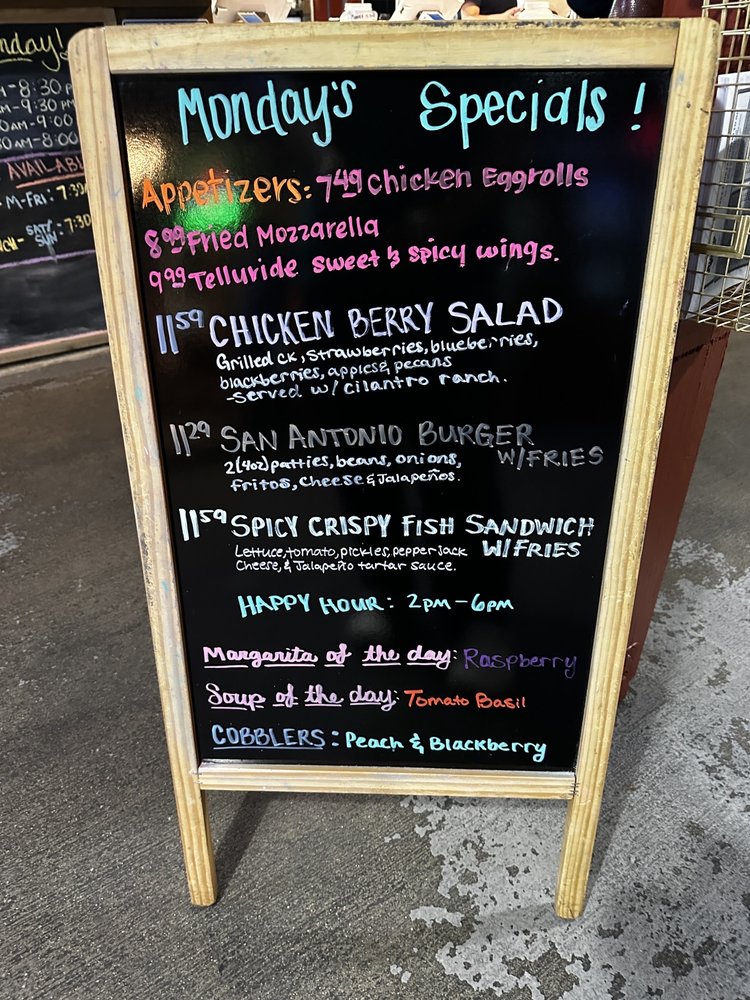 nday!
-8:30 PM
M-9:30 PM
0AM-9:00
AM-8:00
AVAILAB
M-FRI: 7:30
SAT/ SUN: 7:30
Monday's Specials!
Appetizers: 7 49 Chicken Eggrolls
8 99 Fried Mozzarella
9 99 Telluride sweet & spicy wings.
11 59 CHICKEN BERRY SALAD
Grilled ck, strawberries, blueberries,
blackberries, apples & pecans
-served w/ cilantro ranch.
11 29 SAN ANTONIO BURGER
W/FRIES
2(4oz) patties, beans, onions,
fritos, cheese & Jalapeños.
11 59 SPICY CRISPY FISH SANDWICH
W/FRIES
Lettuce, tomato, pickles, pepper jack
Cheese, & Jalapeño tartar sauce.
HAPPY HOUR: 2pm-6pm
Margarita of the day: Raspberry
Soup of the day: Tomato Basil
COBBLERS: Peach & Blackberry